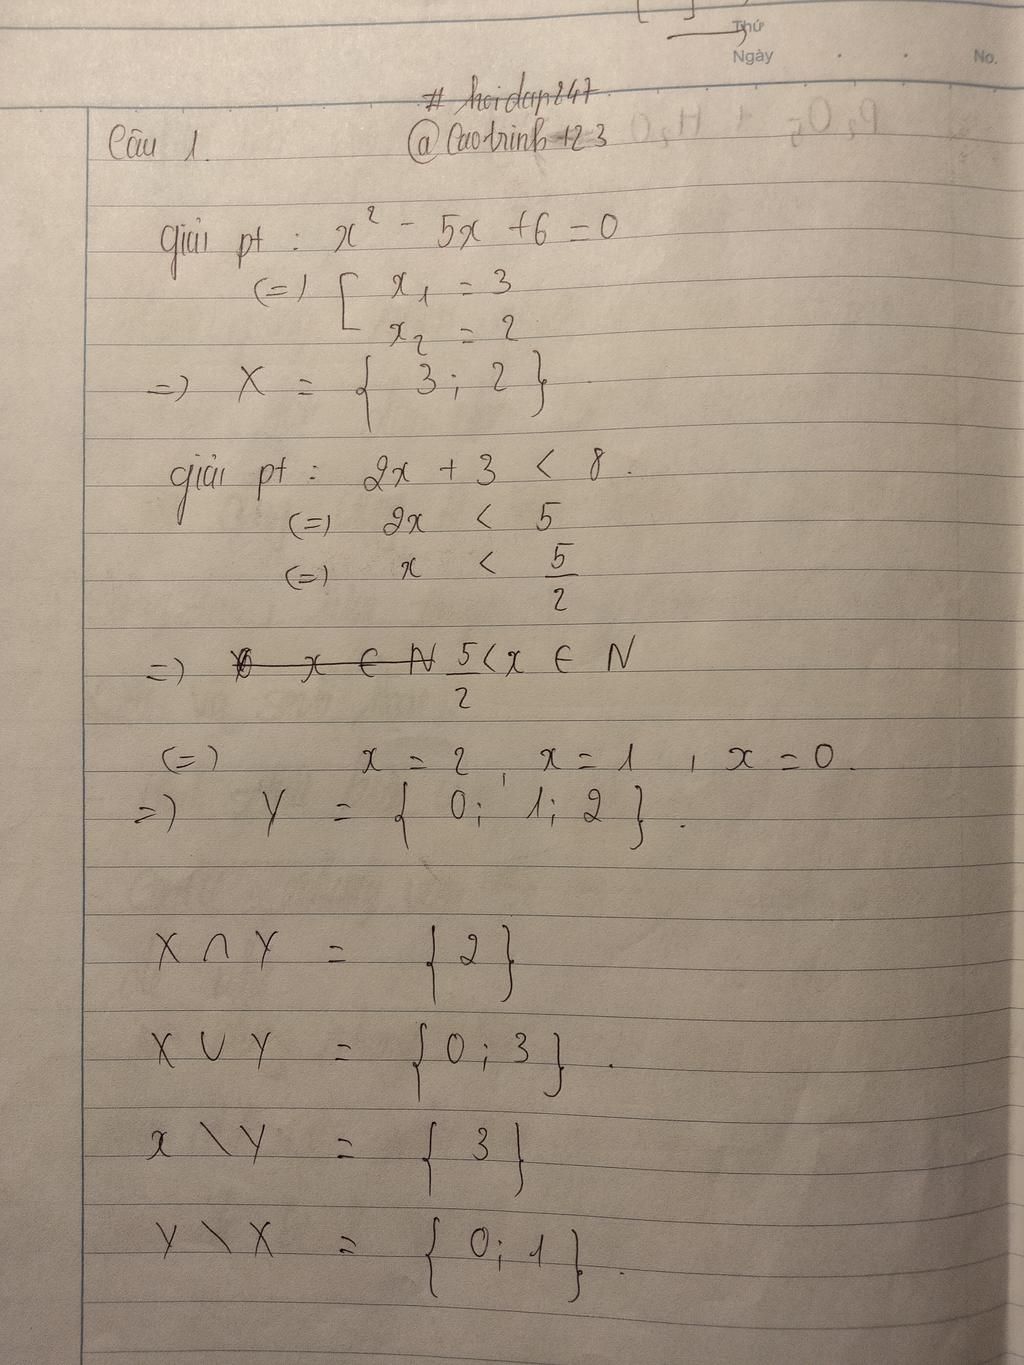 Thứ
Ngày . . No.
# hoidap247
@Caotrinh123
Câu 1.
giải pt : x² - 5x + 6 = 0
(=) [ x₁ = 3
x₂ = 2
=) X = { 3 ; 2 }
giải pt : 2x + 3 < 8.
(=) 2x < 5
(=) x < 5/2
=) x ∈ N 5/2 < x ∈ N
(=) x = 2 , x = 1 , x = 0.
=) Y = { 0 ; 1 ; 2 }.
X ∩ Y = { 2 }
X ∪ Y = { 0 ; 3 }.
x \ Y = { 3 }
Y \ X = { 0 ; 1 }.